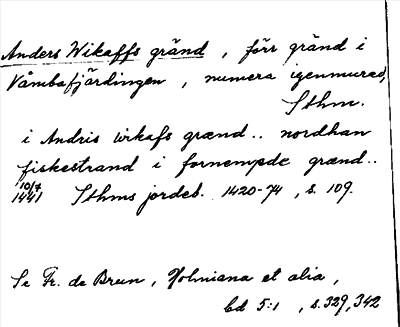 Anders Wikaffs gränd, förr gränd i
Våmbafjärdingen, numera igenmurad,
Sthm.
i Andris wikafs grænd.. nordhan
fiskestrand i fornempde grænd..
10/7 1441 Sthms jordeb. 1420-74, s. 109.
Se Fr. de Brun, Holmiana et alia,
bd 5:1, s. 329, 342